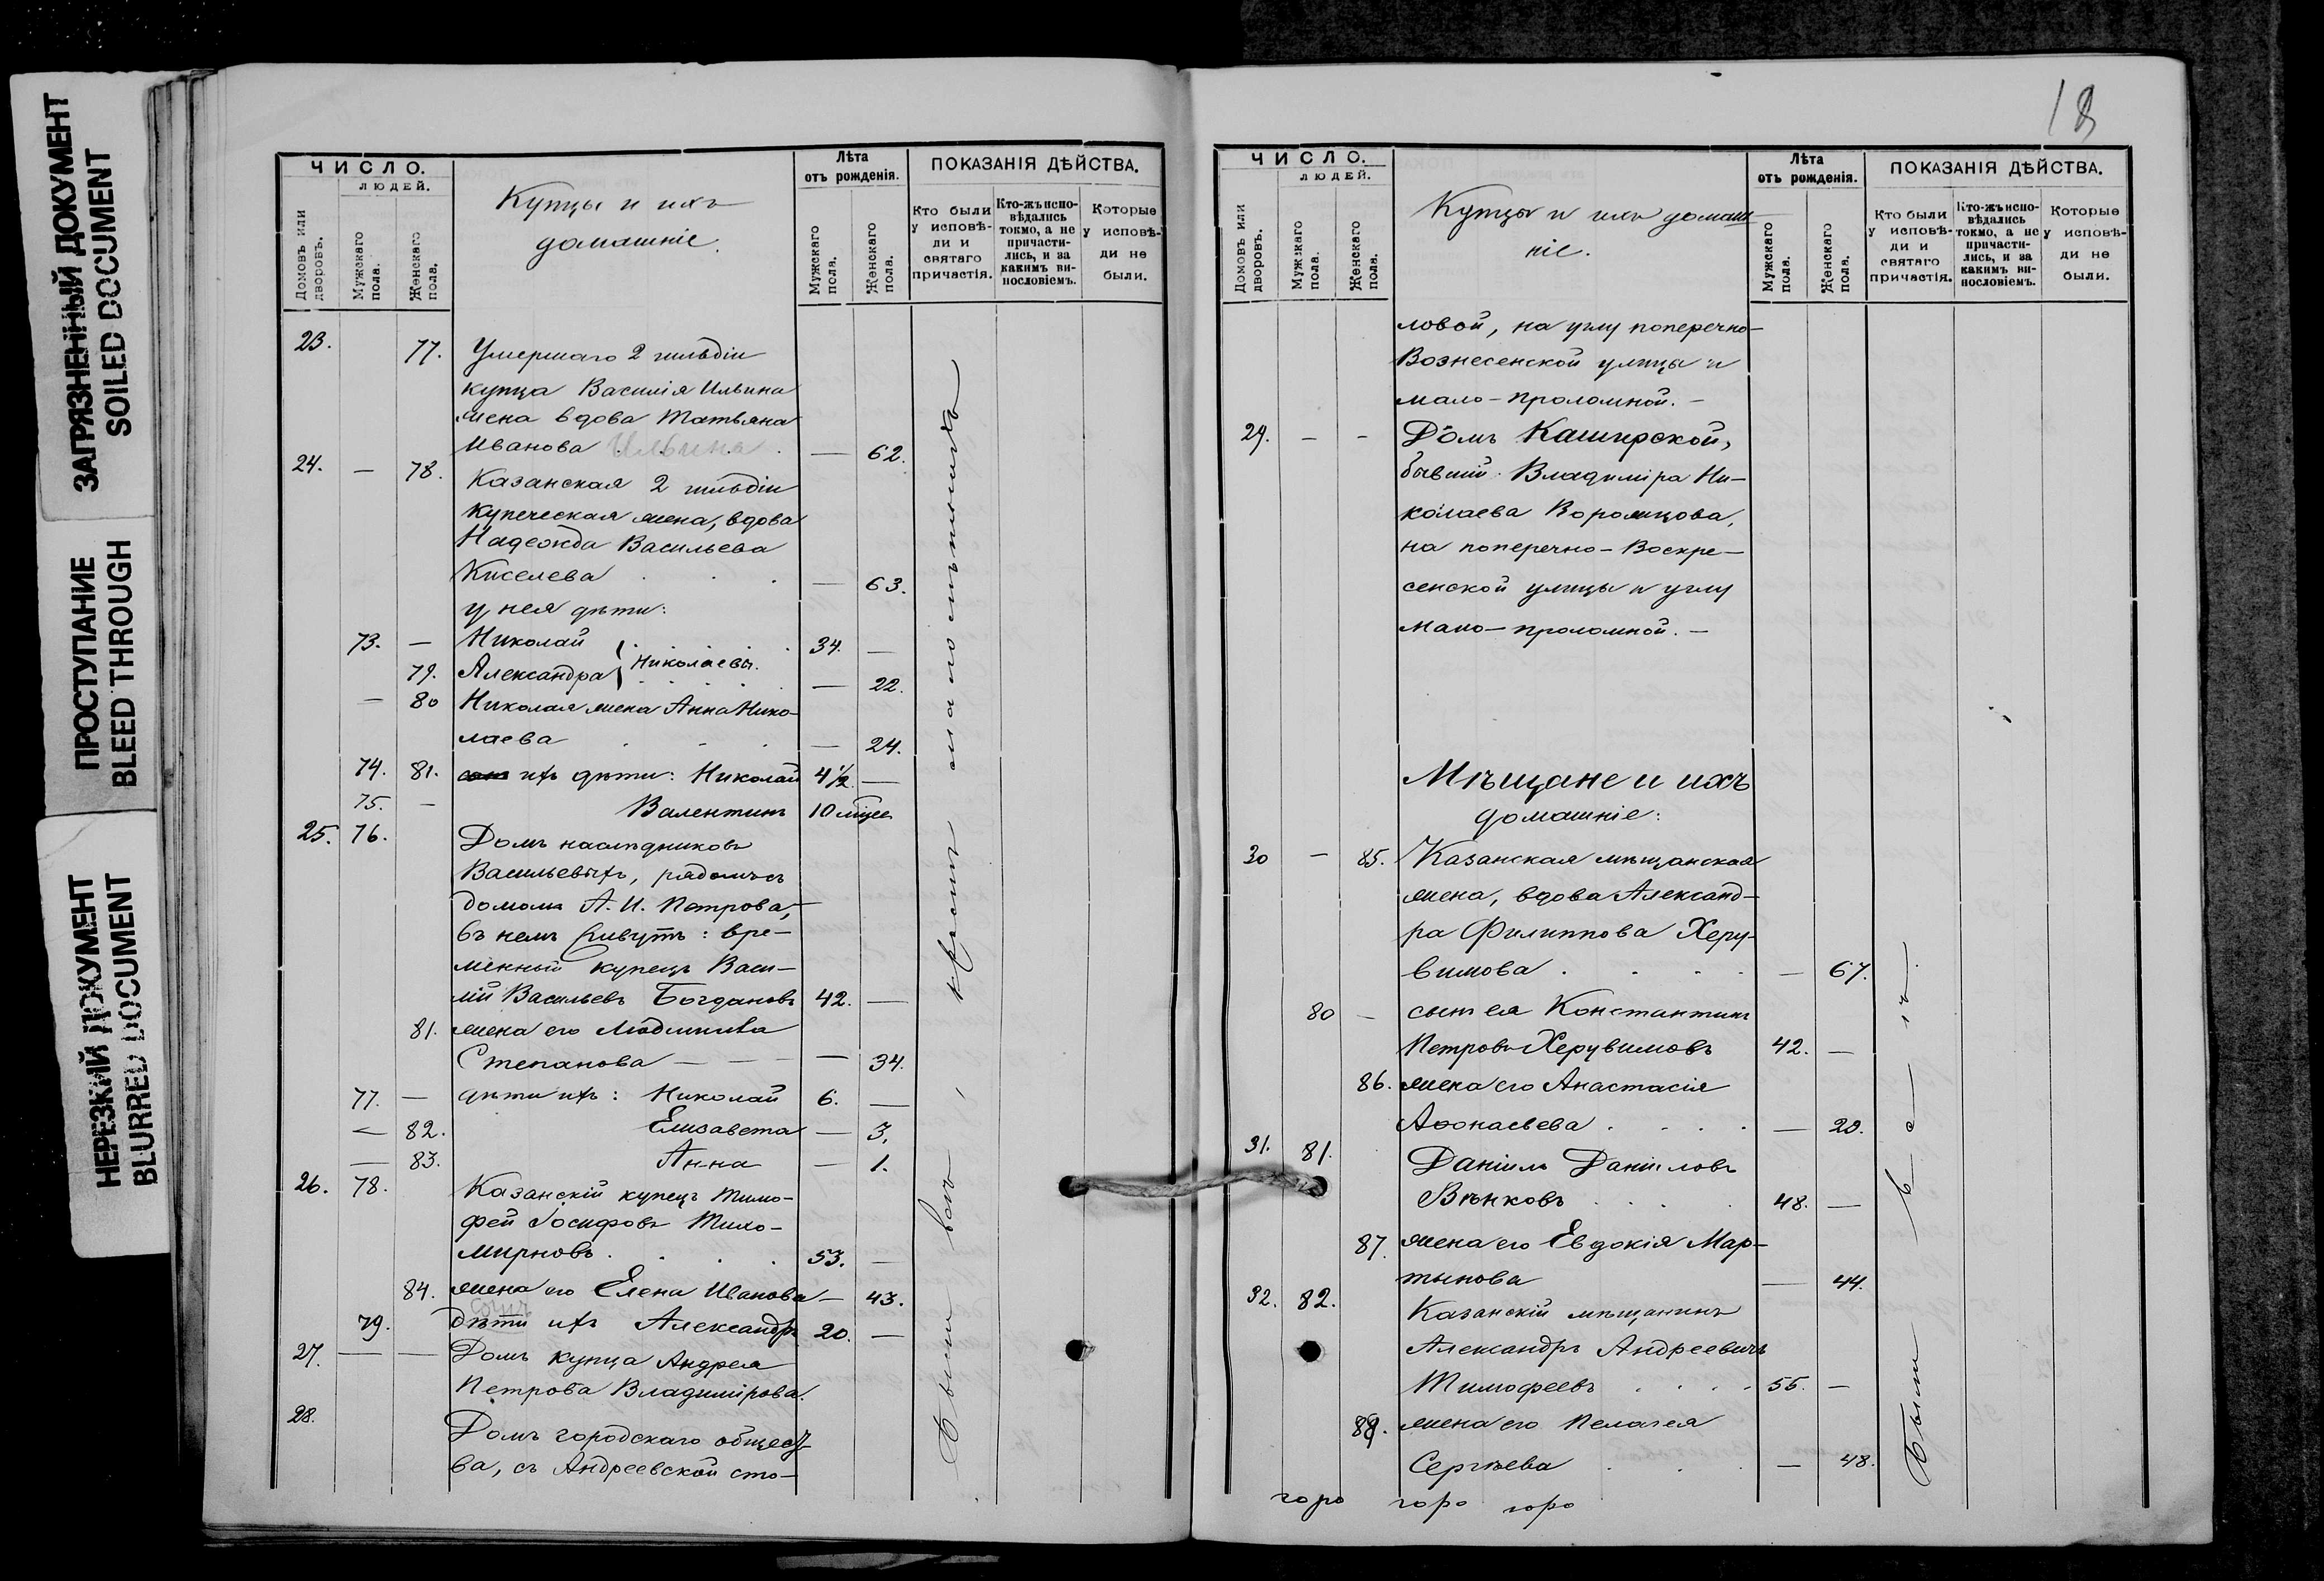 ЗАГРЯЗНЕННЫЙ ДОКУМЕНТ
SOILED DOCUMENT
ПРОСТУПАНИЕ
BLEED THROUGH
НЕРЕЗКИЙ ДОКУМЕНТ
BLURRED DOCUMENT
ЧИСЛО.
ЛЮДЕЙ.
Домовъ или дворовъ.
Мужскаго пола.
Женскаго пола.
Купцы и ихъ
домашніе.
Лѣта
отъ рожденія.
Мужскаго пола.
Женскаго пола.
ПОКАЗАНІЯ ДѢЙСТВА.
Кто были у исповѣди и святаго причастія.
Кто-жъ исповѣдались токмо, а не причастились, и за какимъ винословіемъ.
Которые у исповѣди не были.
23. 77. Умершаго 2 гильдіи
купца Василія Ильина
жена вдова Татьяна
Иванова Ильина — 62.
24. — 78. Казанская 2 гильдіи
купеческая жена, вдова
Надежда Васильева
Киселева . . . — 63.
у нея дѣти:
73. — Николай 34. —
Николаевы.
79. Александра — 22.
— 80 Николая жена Анна Нико-
лаева . . . — 24.
74. 81. ихъ дѣти: Николай 4½ —
75. — Валентинъ 10 мѣсе
25. 76. Домъ наслѣдниковъ
Васильевыхъ, рядомъ съ
домомъ А. И. Петрова,
въ немъ живутъ: вре-
менный купецъ Васи-
лій Васильевъ Богдановъ 42. —
81. жена его Людмила
Степанова — — — — 34.
77. — дѣти ихъ: Николай 6. —
— 82. Елизавета — 3.
— 83. Анна — 1.
26. 78. Казанскій купецъ Тимо-
фей Іосифовъ Тихо-
мирновъ . . . 53. —
84. жена его Елена Иванова — 43.
сынъ
79. дѣти ихъ Александръ 20. —
27. — — Домъ купца Андрея
Петрова Владимірова.
28. Домъ городскаго общест-
ва, съ Андреевской сто-
Были
18
ЧИСЛО.
ЛЮДЕЙ.
Домовъ или дворовъ.
Мужскаго пола.
Женскаго пола.
Купцы и ихъ домаш
ніе.
Лѣта
отъ рожденія.
Мужскаго пола.
Женскаго пола.
ПОКАЗАНІЯ ДѢЙСТВА.
Кто были у исповѣди и святаго причастія.
Кто-жъ исповѣдались токмо, а не причастились, и за какимъ винословіемъ.
Которые у исповѣди не были.
ловой, на углу поперечно-
Вознесенской улицы и
мало-проломной. —
29. — — Домъ Каширской,
бывший Владиміра Ни-
колаева Воронцова,
на поперечно-Воскре-
сенской улицы и углу
мало-проломной. —
Мѣщане и ихъ
домашніе:
30 — 85. Казанская мѣщанская
жена, вдова Александ-
ра Филиппова Херу-
вимова . . . . — 67.
80 — сынъ ея Константинъ
Петровъ Херувимовъ 42. —
86. жена его Анастасія
Аѳонасьева . . . . — 20.
31. 81. Даніилъ Даніиловъ
Вѣнковъ . . . 48. —
87. жена его Евдокія Мар-
тынова — 44.
32. 82. Казанскій мѣщанинъ
Александръ Андреевичъ
Тимофеевъ . . . . 55. —
88. жена его Пелагея
Сергѣева . . . — 48.
горо горо горо
Были